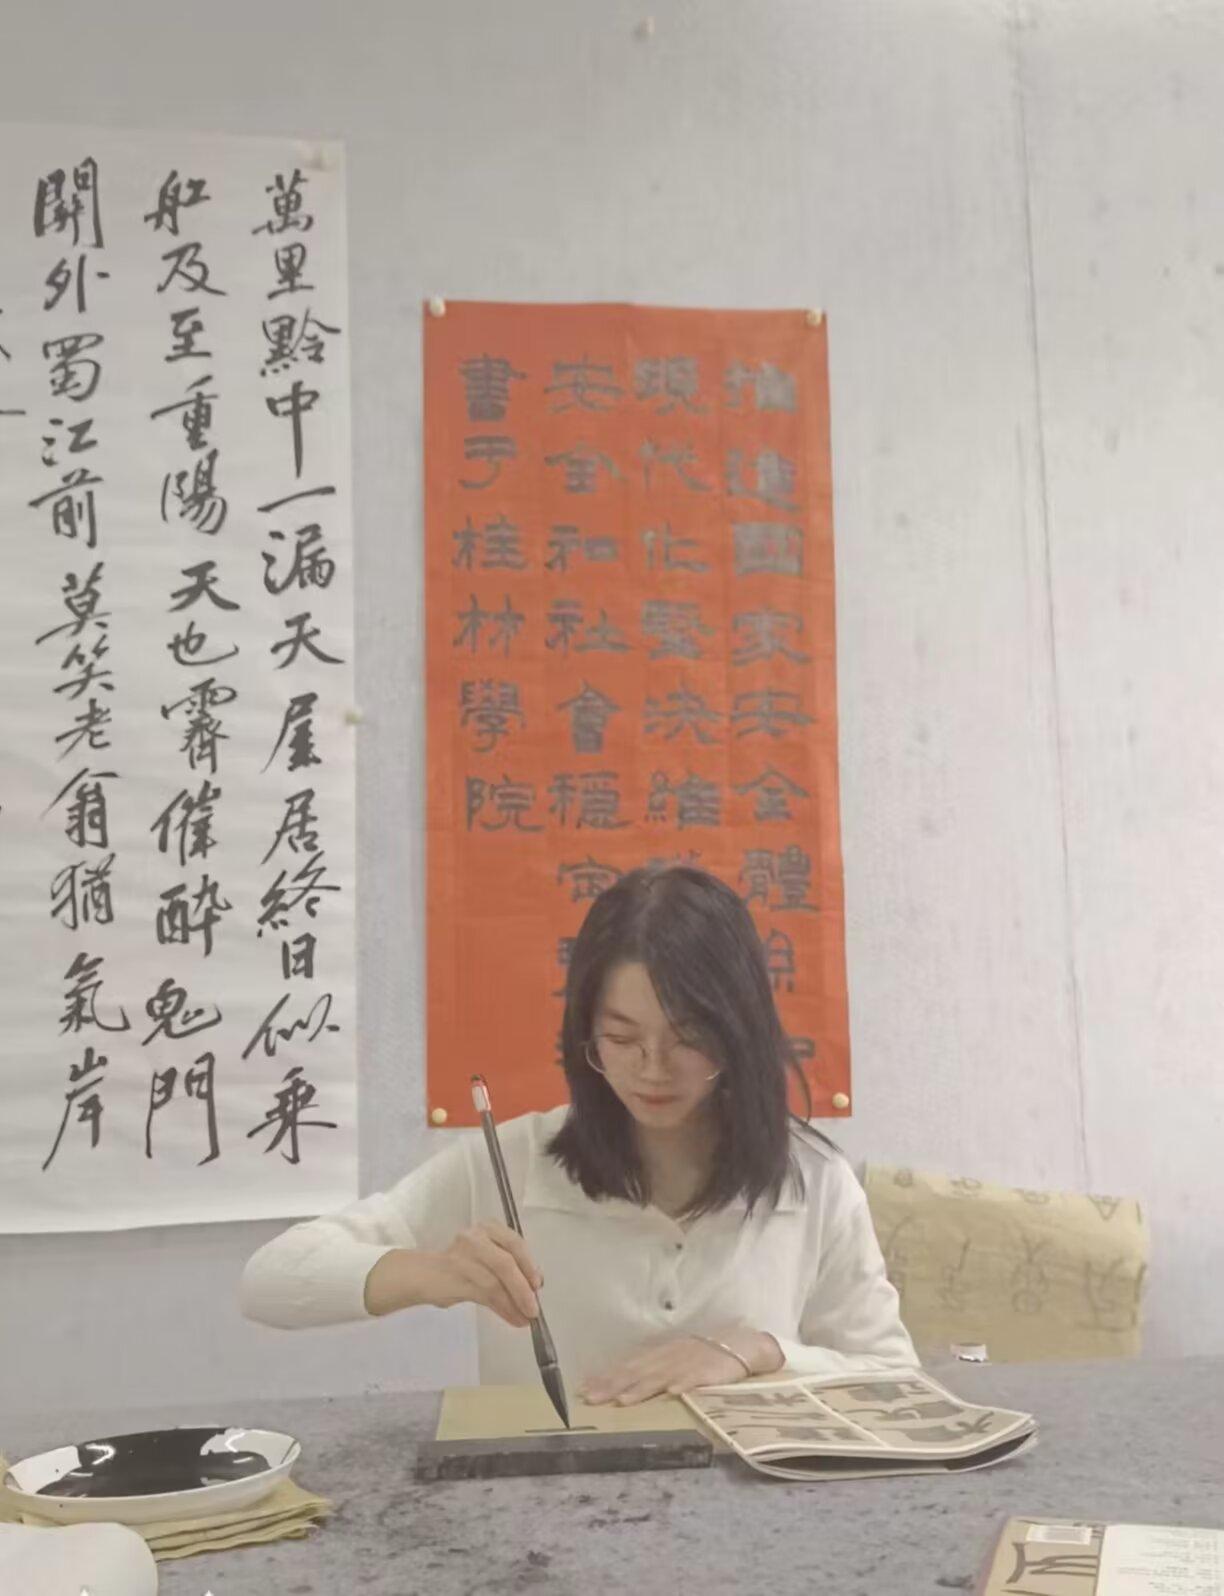 萬里黔中一漏天屋居終日似乘
舡及至重陽天也霽催醉鬼門
關外蜀江前莫笑老翁猶氣岸
推進國家安全體系和
現代化堅決維護
安全和社會穩定
書于桂林學院